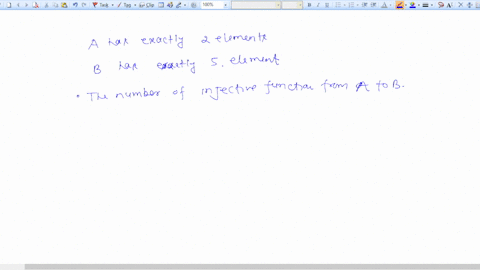 A has exactly 2 elements
B has exactly 5. element
• The number of injective function from A to B.